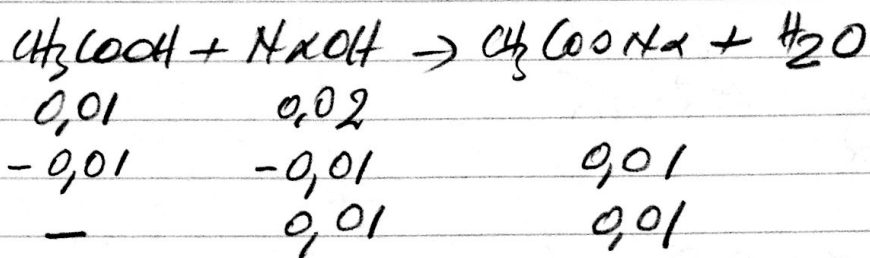 CH3COOH + NaOH → CH3COONa + H2O
0,01 0,02
-0,01 -0,01 0,01
— 0,01 0,01